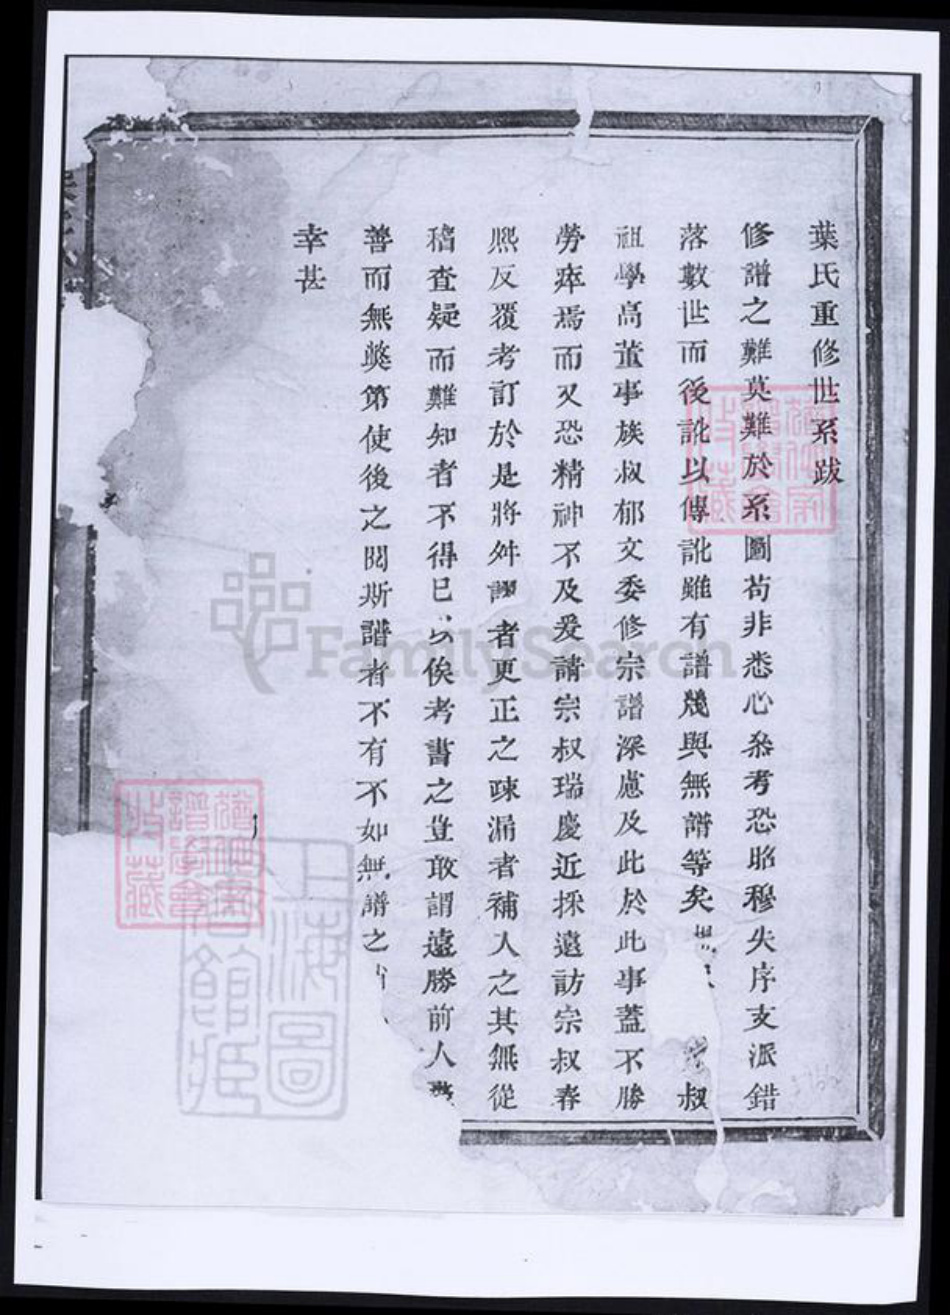 葉氏重修世系跋
修譜之難莫難於系圖苟非悉心叅考恐昭穆失序支派錯
落數世而後訛以傳訛雖有譜幾與無譜等矣叔
祖學高董事族叔郁文委修宗譜深慮及此於此事蓋不勝
勞瘁焉而又恐精神不及爰請宗叔瑞慶近採遠訪宗叔春
熈反覆考訂於是將舛謬者更正之疎漏者補入之其無從
稽查疑而難知者不得已以俟考書之豈敢謂遠勝前人
善而無獘第使後之閱斯譜者不有不如無譜之
幸甚
FamilySearch